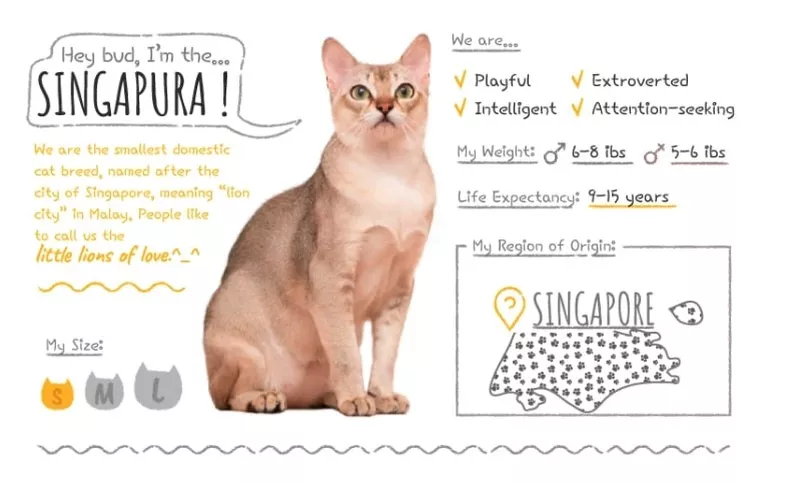 Hey bud, I'm the...
SINGAPURA !
We are the smallest domestic
cat breed, named after the
city of Singapore, meaning "lion
city" in Malay. People like
to call us the
little lions of love.^_^
My Size:
S M L
We are...
Playful Extroverted
Intelligent Attention-seeking
My Weight: ♂ 6-8 ibs ♂ 5-6 ibs
Life Expectancy: 9-15 years
My Region of Origin:
SINGAPORE